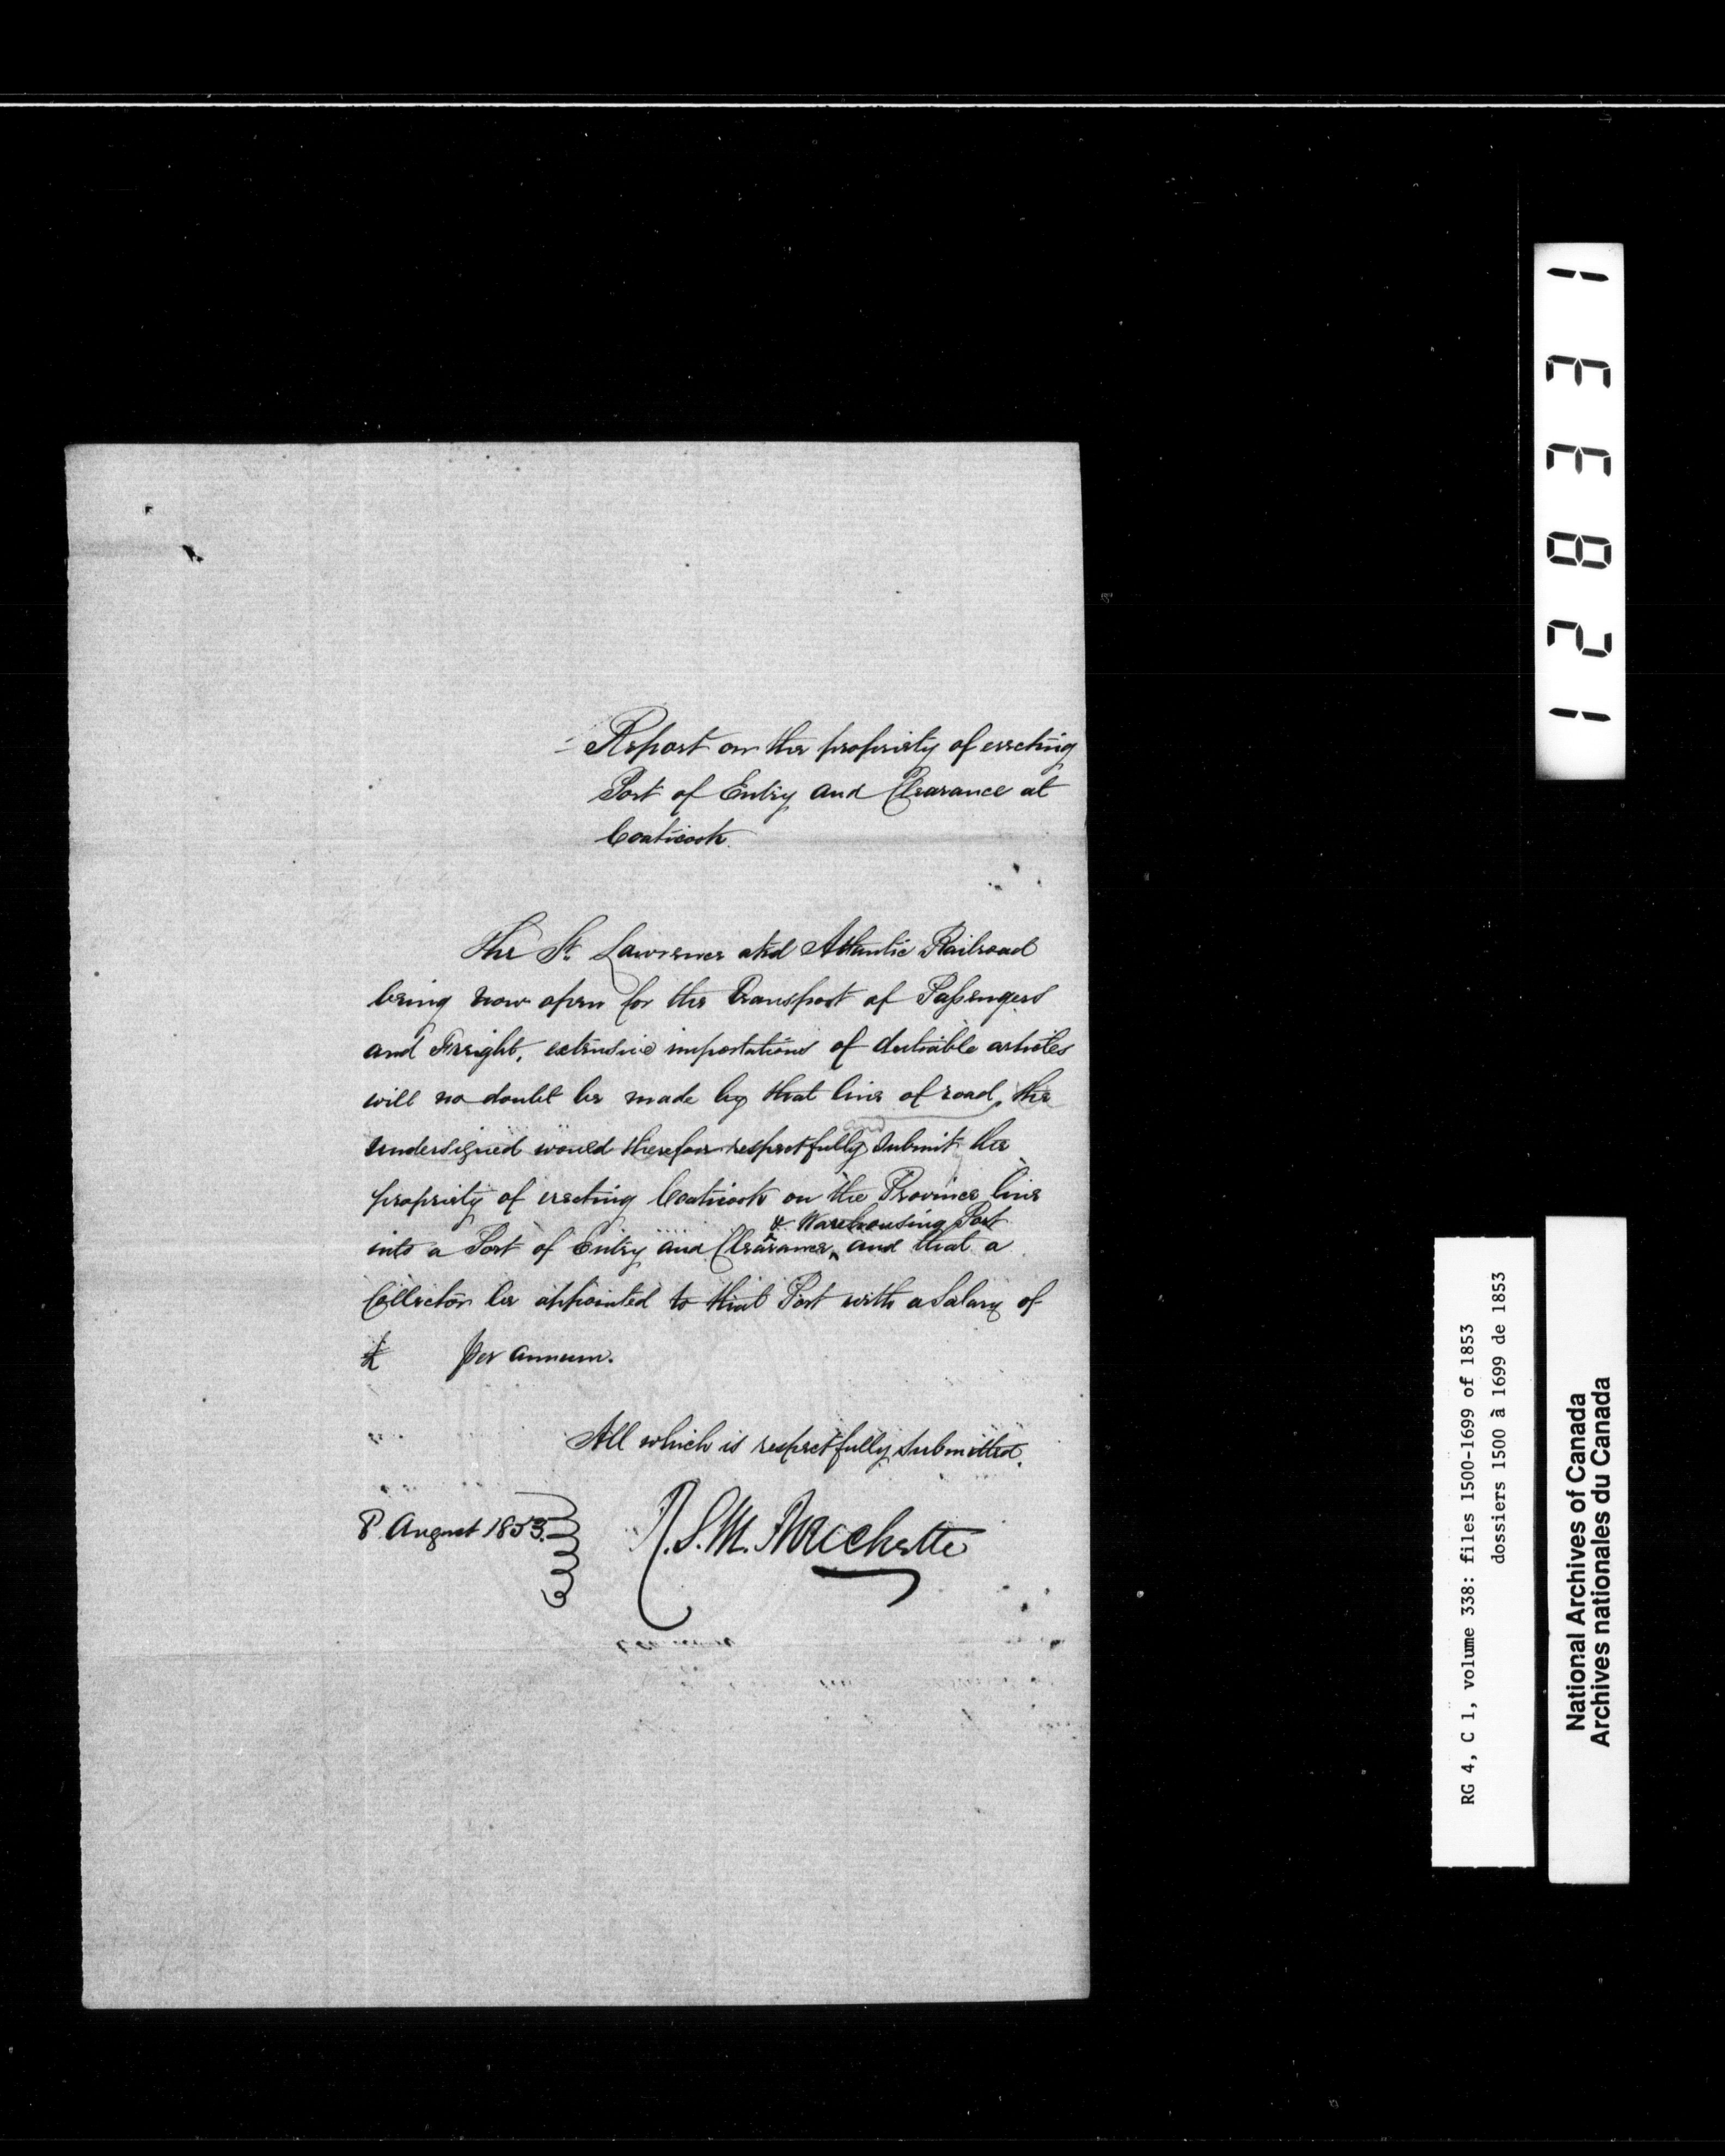 Report on the propriety of erecting
Port of Entry and Clearance at
Coaticook.
The St. Lawrence and Atlantic Railroad
being now open for the Transport of Passengers
and Freight, extensive importations of dutiable articles
will no doubt be made by that line of road, the
and
undersigned would therefore respectfully submit the
propriety of erecting Coaticook on the Province line
& Warehousing Port
into a Port of Entry and Clearance, and that a
Collector be appointed to that Port with a Salary of
£ per annum.
All which is respectfully submitted.
8 August 1853.
R.S.M. Bouchette
12833 1
RG 4, C 1, volume 338: files 1500-1699 of 1853
dossiers 1500 à 1699 de 1853
National Archives of Canada
Archives nationales du Canada